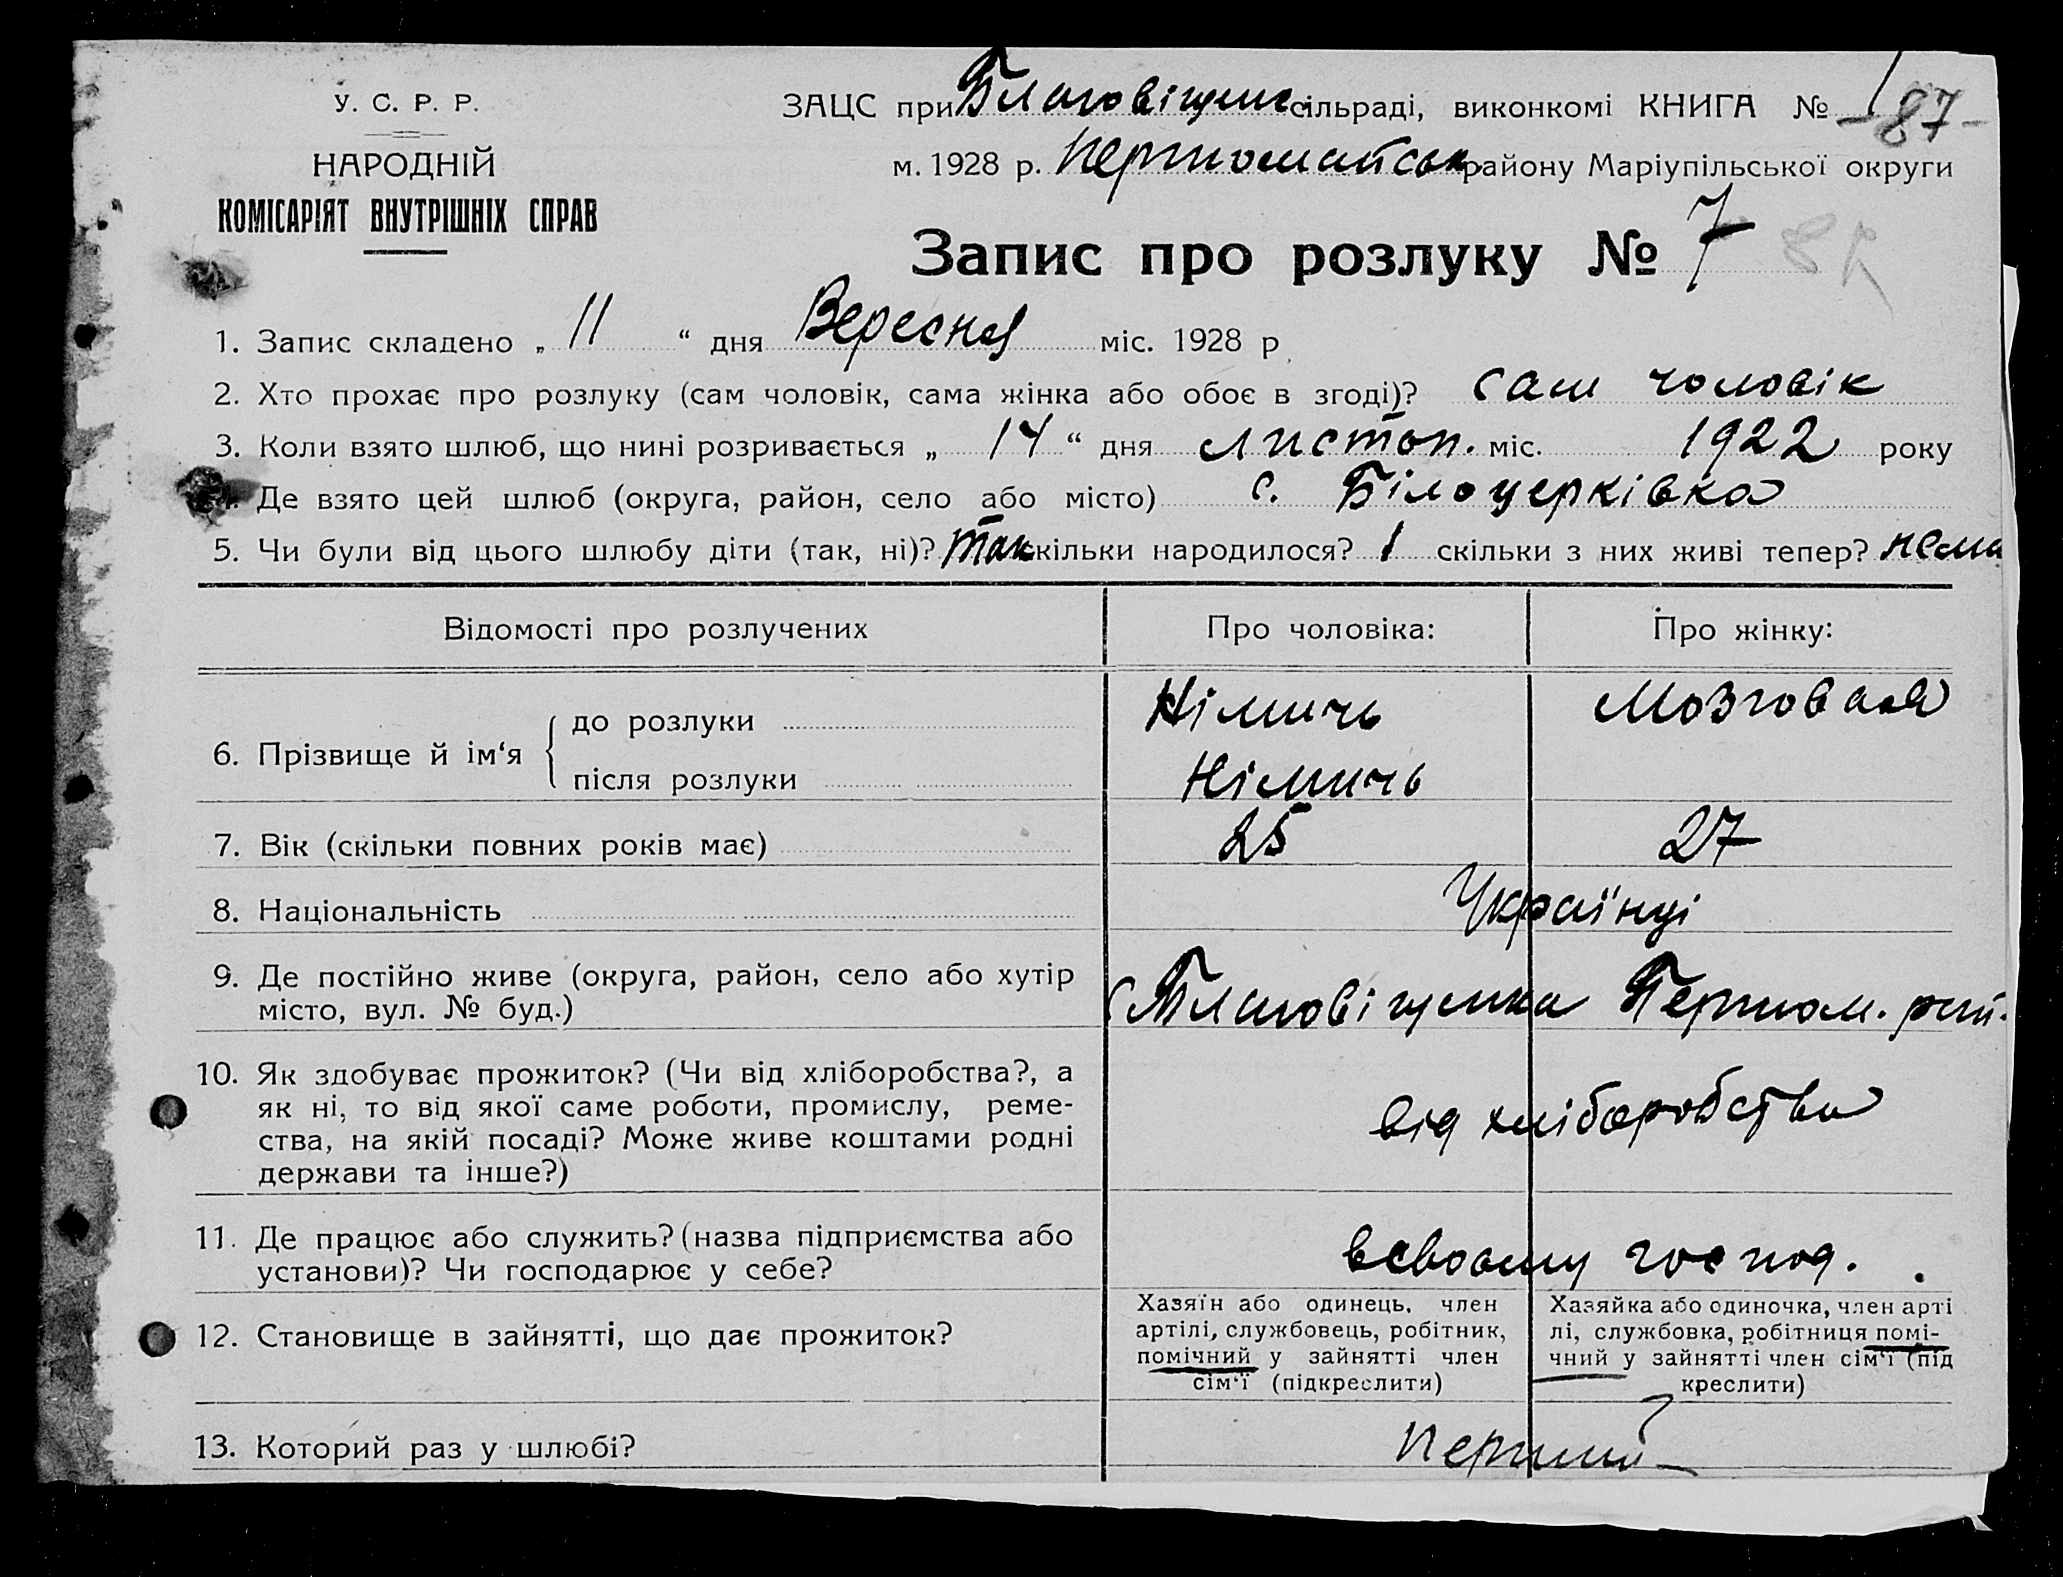 У. С. Р. Р.
НАРОДНІЙ
КОМІСАРІЯТ ВНУТРІШНІХ СПРАВ
ЗАЦС при Благовіщенс. сільраді, виконкомі КНИГА № 1
87
м. 1928 р. Першомайськ. району Маріупільської округи
Запис про розлуку № 7
1. Запис складено „ 11 “ дня Вересня міс. 1928 р
2. Хто прохає про розлуку (сам чоловік, сама жінка або обоє в згоді)? сам чоловік
3. Коли взято шлюб, що нині розривається „ 14 “ дня листоп. міс. 1922 року
4. Де взято цей шлюб (округа, район, село або місто) с. Білоцерківка
5. Чи були від цього шлюбу діти (так, ні)? Так скільки народилося? 1 скільки з них живі тепер? нема
Відомості про розлучених Про чоловіка: Про жінку:
6. Прізвище й ім‘я { до розлуки Німичь Мозговая
після розлуки Німичь
7. Вік (скільки повних років має) 25 27
8. Національність Українці
9. Де постійно живе (округа, район, село або хутір
місто, вул. № буд.) с Благовіщенка Першом. рай.
10. Як здобуває прожиток? (Чи від хліборобства?, а
як ні, то від якої саме роботи, промислу, реме-
ства, на якій посаді? Може живе коштами родні
держави та інше?)
від хліборобства
11. Де працює або служить? (назва підприємства або
установи)? Чи господарює у себе?
всвоєму господ.
12. Становище в зайнятті, що дає прожиток?
Хазяїн або одинець, член
артілі, службовець, робітник,
помічний у зайнятті член
сім‘ї (підкреслити)
Хазяйка або одиночка, член арті
лі, службовка, робітниця помі-
чний у зайнятті член сім‘ї (під
креслити)
13. Который раз у шлюбі? перший